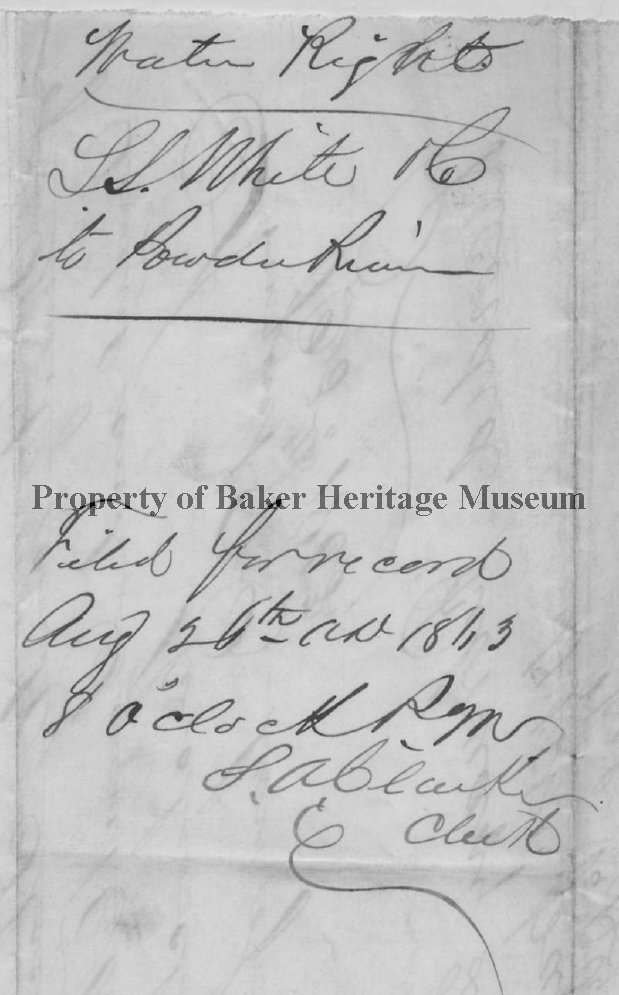 Water Right
L.S. White & Co
to Powder River
Property of Baker Heritage Museum
Filed for record
Aug 26th AD 1863
8 o'clock P.M
S. A Clarke
Clerk